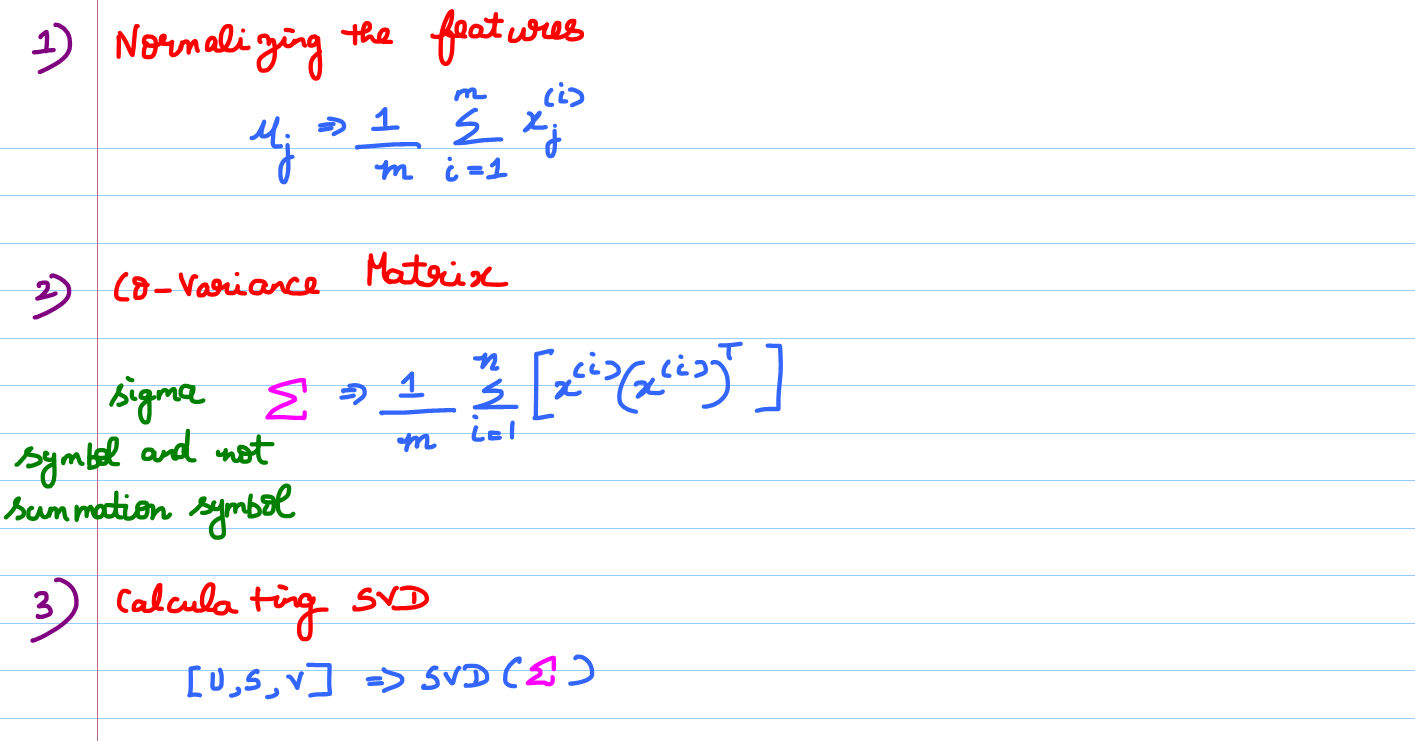 1) Normalizing the features
μ_j ⇒ 1/m Σ_{i=1}^{m} x_j^{(i)}
2) Co-Variance Matrix
sigma Σ ⇒ 1/m Σ_{i=1}^{n} [x^{(i)}(x^{(i)})^T]
symbol and not
summation symbol
3) Calculating SVD
[U,S,V] ⇒ SVD(Σ)